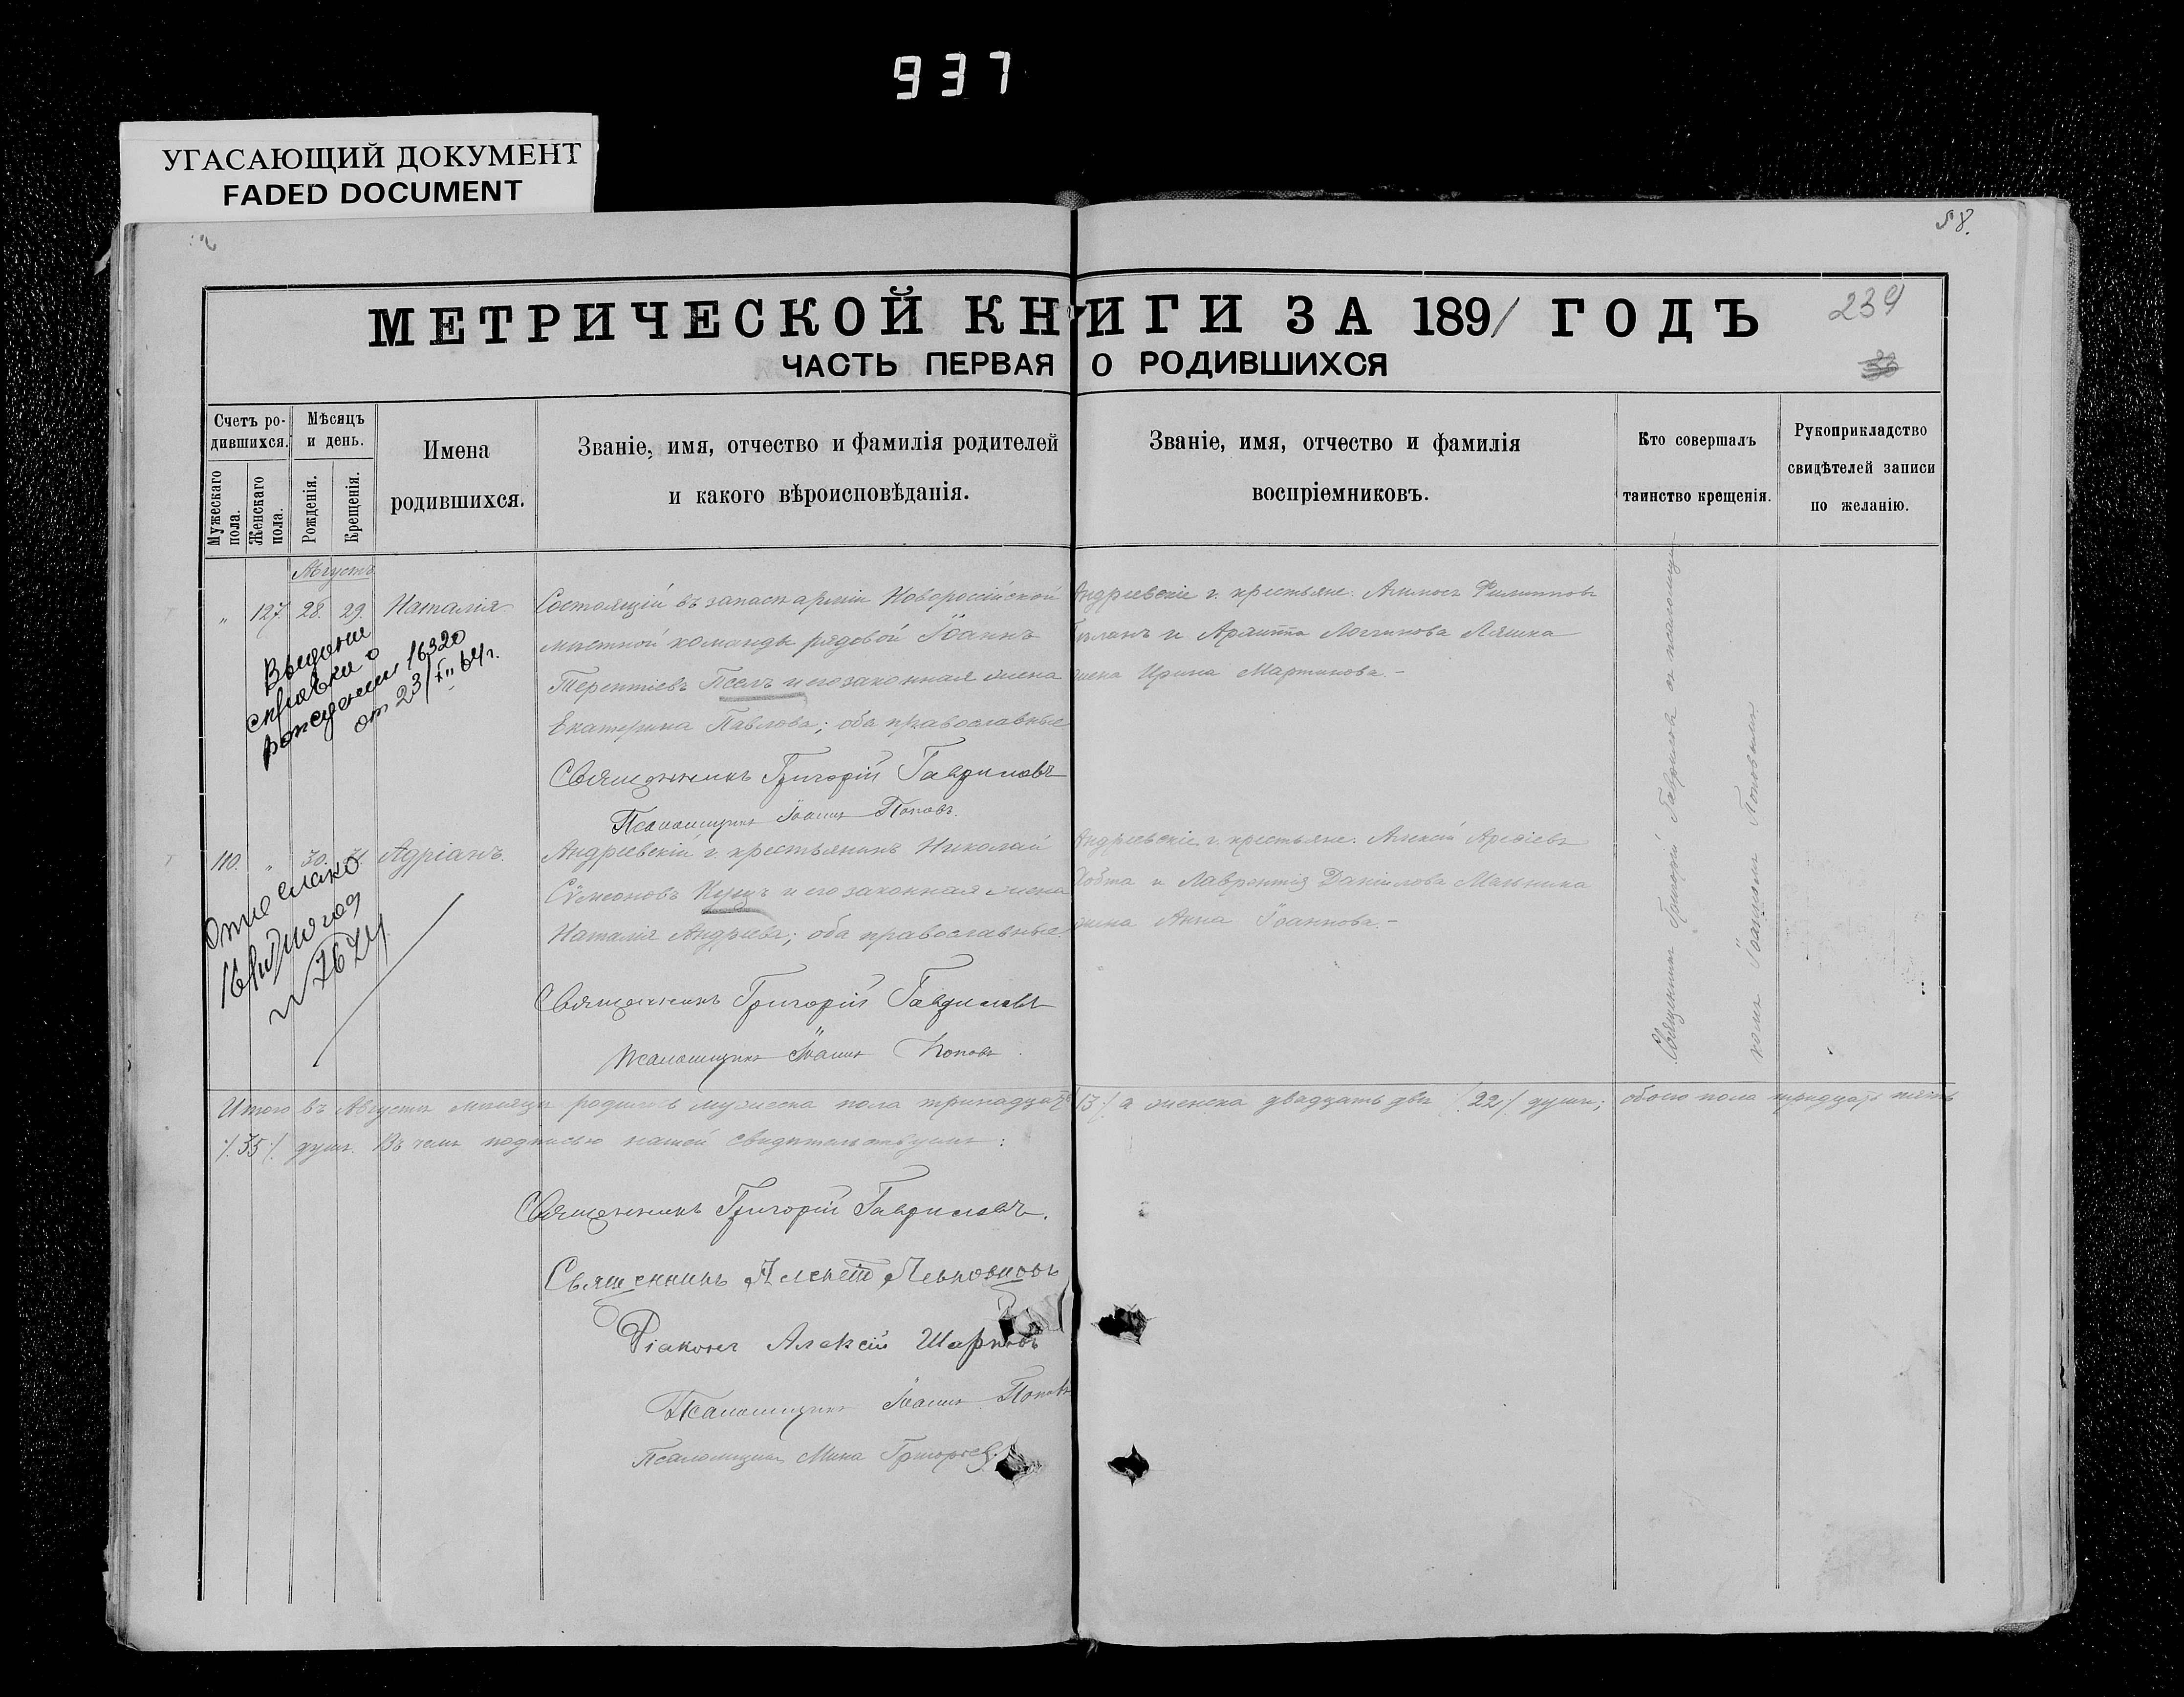 937
УГАСАЮЩИЙ ДОКУМЕНТ
FADED DOCUMENT
58.
МЕТРИЧЕСКОЙ КНИГИ ЗА 1891 ГОДЪ
239
ЧАСТЬ ПЕРВАЯ О РОДИВШИХСЯ
Счетъ ро-
дившихся.
Мужескаго
пола.
Женскаго
пола.
Мѣсяцъ
и день.
Рожденія.
Крещенія.
Имена
родившихся.
Званіе, имя, отчество и фамилія родителей
и какого вѣроисповѣданія.
Званіе, имя, отчество и фамилія
воспріемниковъ.
Кто совершалъ
таинство крещенія.
Рукоприкладство
свидѣтелей записи
по желанію.
Августъ
„ 127. 28. 29. Наталія
Состоящій въ запасѣ арміи Новоросійской
мѣстной команды рядовой Іоаннъ
Терентіевъ Псёлъ и его законная жена
Екатерина Павлова; оба православные
Андреевскіе г. крестьяне. Филиппов
и Логгинова Ляшка
жена Ирина Мартинова.-
Священникъ Григорій Гавриловъ
Псаломщикъ Іоаннъ Поповъ.
Выдана
справка о
рождении 16320
от 23/XII 64г.
110. „ 30. Адріанъ.
Андреевскій г. крестьянинъ Николай
Сѵмеоновъ Куцъ и его законная жена
Наталія Андреева; оба православные.
Андреевскіе г. крестьяне. Алексій
и Лаврентія Даніилова Мельника
жена Анна Іоаннова.-
Священникъ Григорій Гавриловъ
Псаломщикъ Іоаннъ Поповъ
Относлано
7674
Священникъ Григорій Гавриловъ съ псаломщи-
комъ Іоанномъ Поповымъ
Итого въ Августѣ мѣсяцѣ родилось мужеска пола тринадцать /13/ а женска двадцать двѣ /22/ души; обоего пола тридцать пять
/35/ душъ. Въ чемъ подписью нашей свидѣтельствуемъ:
Священникъ Григорій Гавриловъ.
Священникъ Алексѣй
Діаконъ Алексій
Псаломщикъ Іоаннъ Поповъ
Псаломщикъ Мина Григорьев